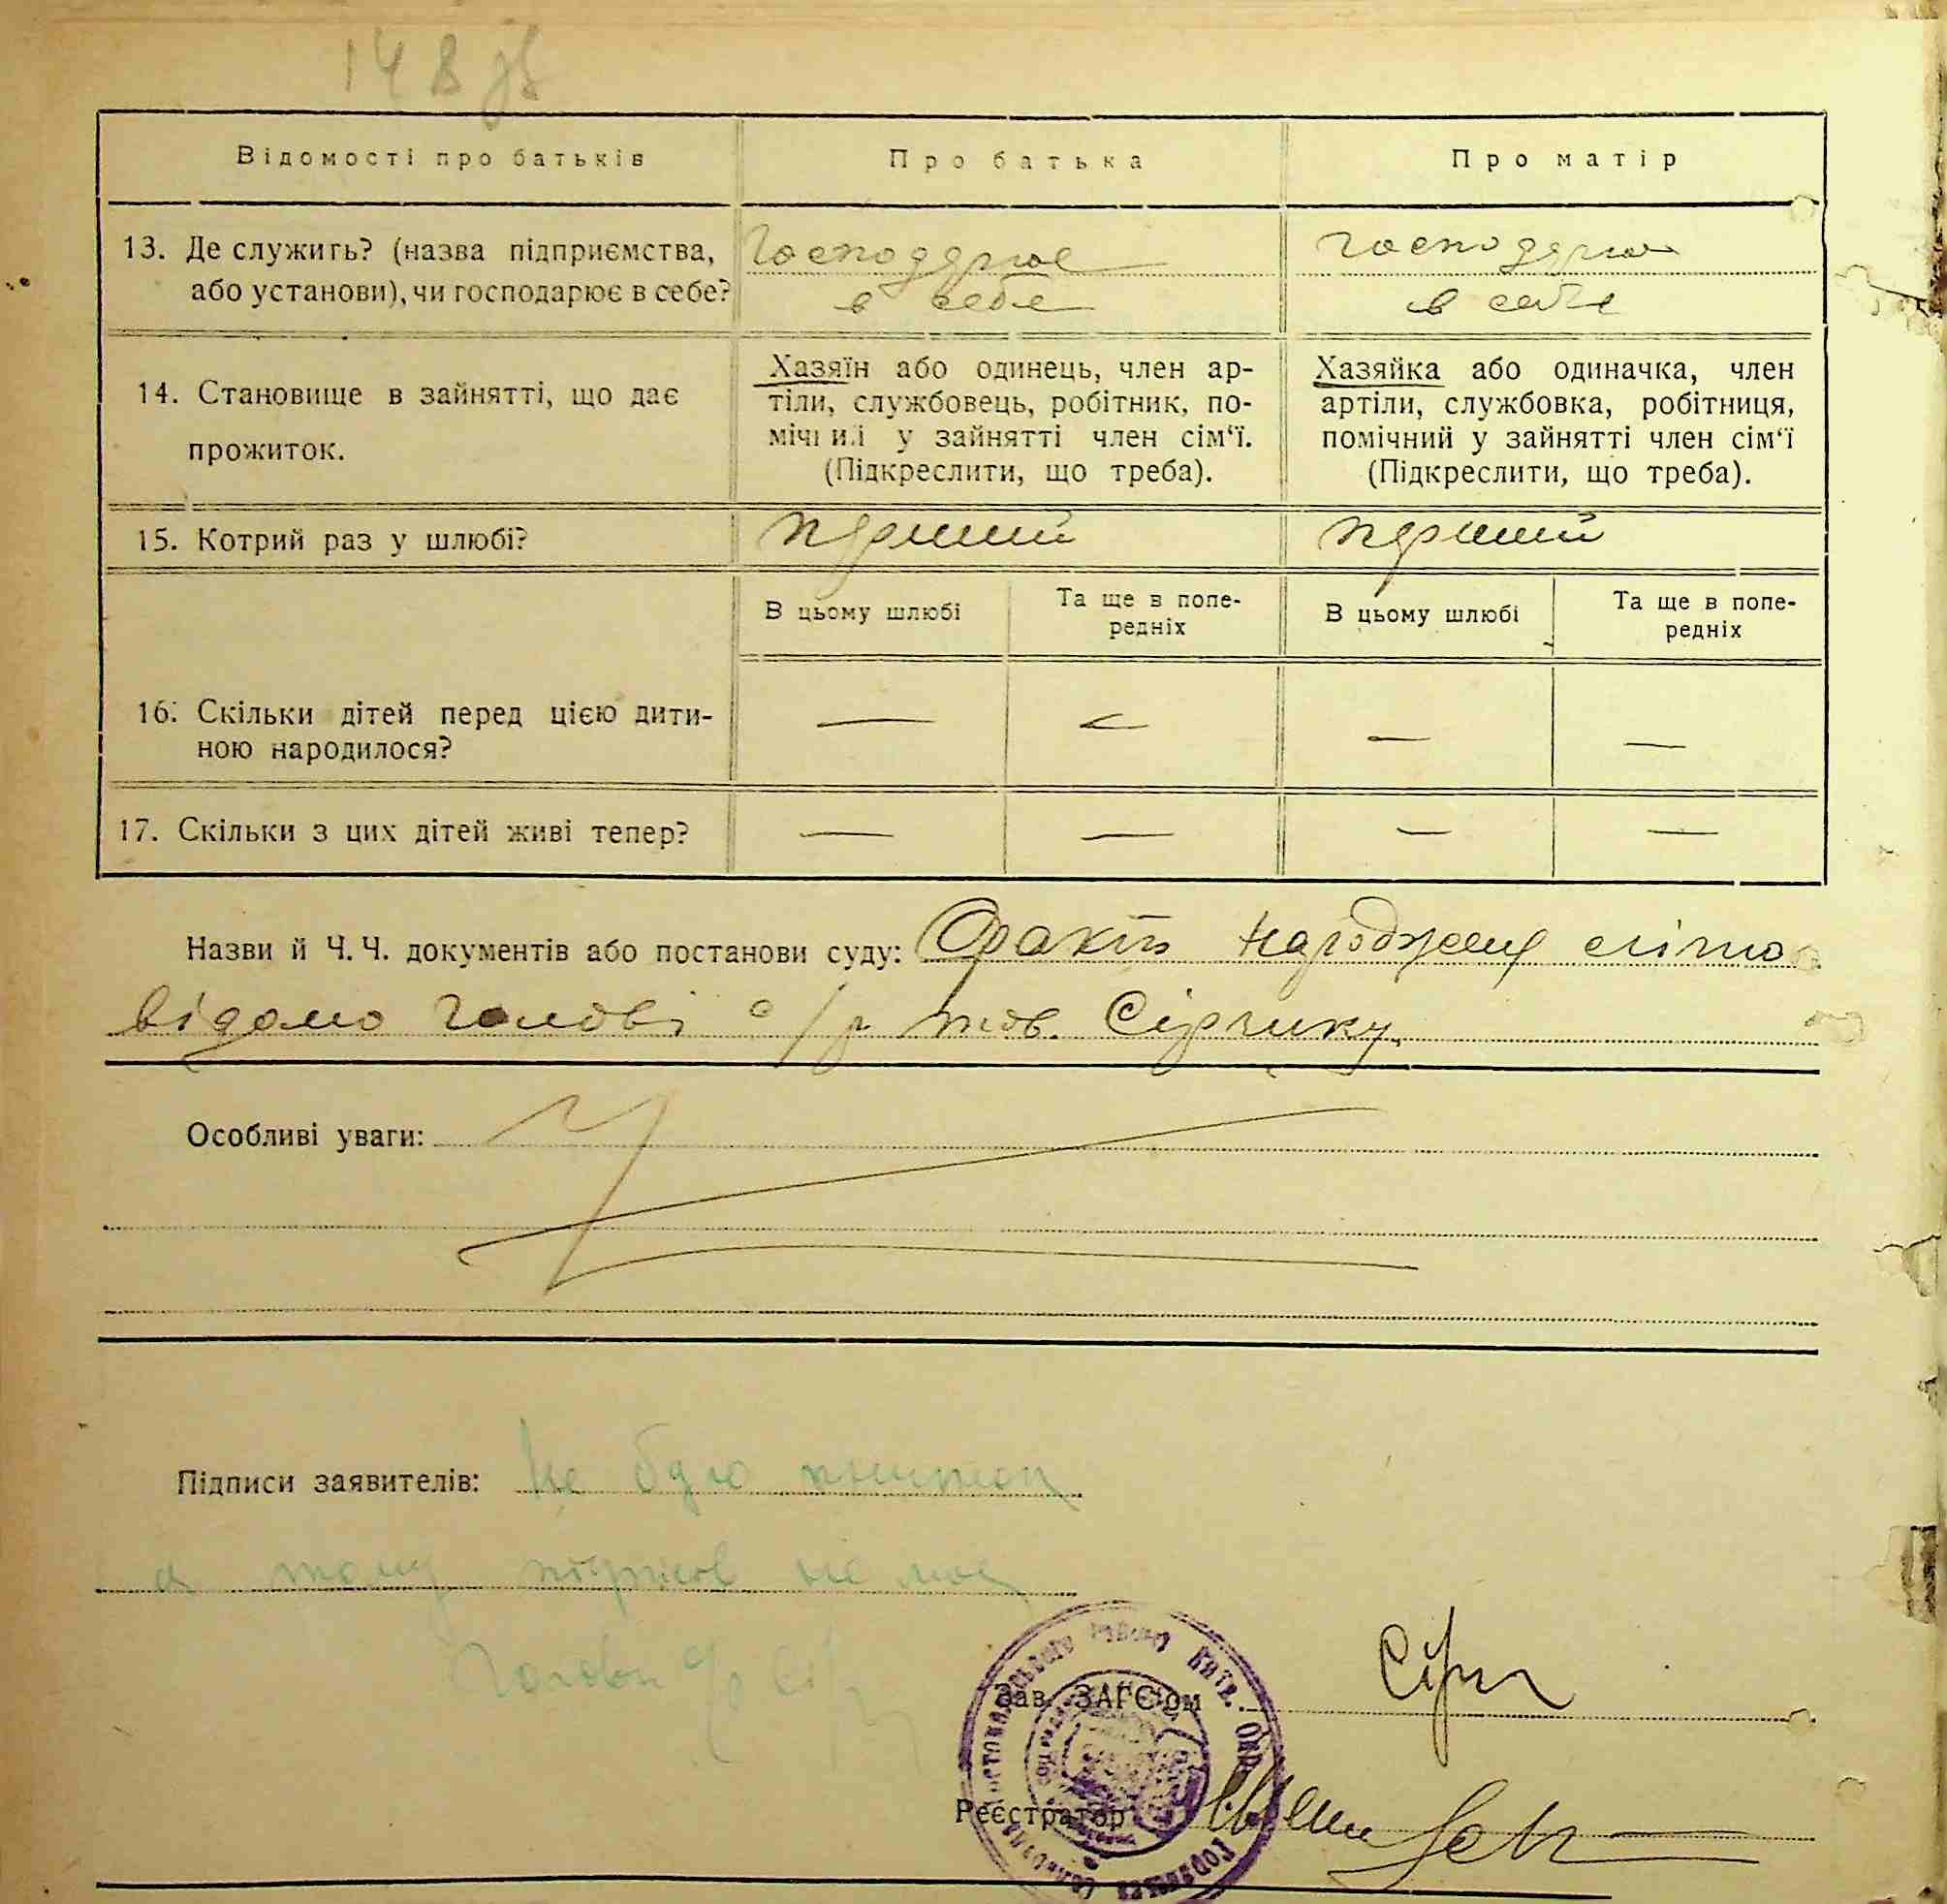 148 зв
Відомості про батьків
Про батька
Про матір
13. Де служить? (назва підприємства,
або установи), чи господарює в себе?
Господарює
в себе
господарює
в себе
14. Становище в зайнятті, що дає
прожиток.
Хазяїн або одинець, член ар-
тіли, службовець, робітник, по-
мічний у зайнятті член сім‘ї.
(Підкреслити, що треба).
Хазяйка або одиначка, член
артіли, службовка, робітниця,
помічний у зайнятті член сім‘ї
(Підкреслити, що треба).
15. Котрий раз у шлюбі?
перший
перший
В цьому шлюбі
Та ще в попе-
редніх
В цьому шлюбі
Та ще в попе-
редніх
16. Скільки дітей перед цією дити-
ною народилося?
— — — —
17. Скільки з цих дітей живі тепер?
— — — —
Назви й Ч. Ч. документів або постанови суду: Факт народження
відомо голові с/р тов. Сірчику.
Особливі уваги:
Підписи заявителів: Не
а тому підписів не має
Голова с/р Сір
Зав. ЗАГС‘ом
Реєстратор
району Київ. Окр.